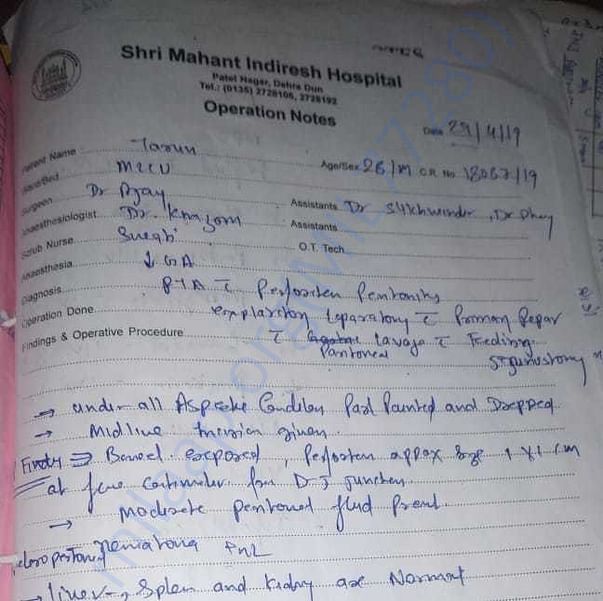 Shri Mahant Indiresh Hospital
Patel Nagar, Dehra Dun
Tel.: (0135) 2728106, 2728192
Operation Notes
Date 29/4/19
Patient Name Tarun
Age/Sex 26/M C.R. No. 18067/19
Ward/Bed MICU
Surgeon Dr Ajay Assistants Dr Sukhwinder, Dr
Anaesthesiologist Dr. Assistants
Scrub Nurse O.T. Tech.
Anaesthesia ↓ GA
Diagnosis Perforiten Peritonitis
Operation Done Explaration Laparatomy c̄ Primary Repar
Findings & Operative Procedure c̄ lavage c̄ Feeding
Peritoneal
→ under all Aspetic Condition Part Painted and Drapped
→ Midline Incision given
⇒ Bowel exposed, Perforation appox size 1 x 1 cm
at five centimeter from DJ Junction
→ Moderate peritoneal fluid Present
→ liver, Spleen and Kidney are Normal